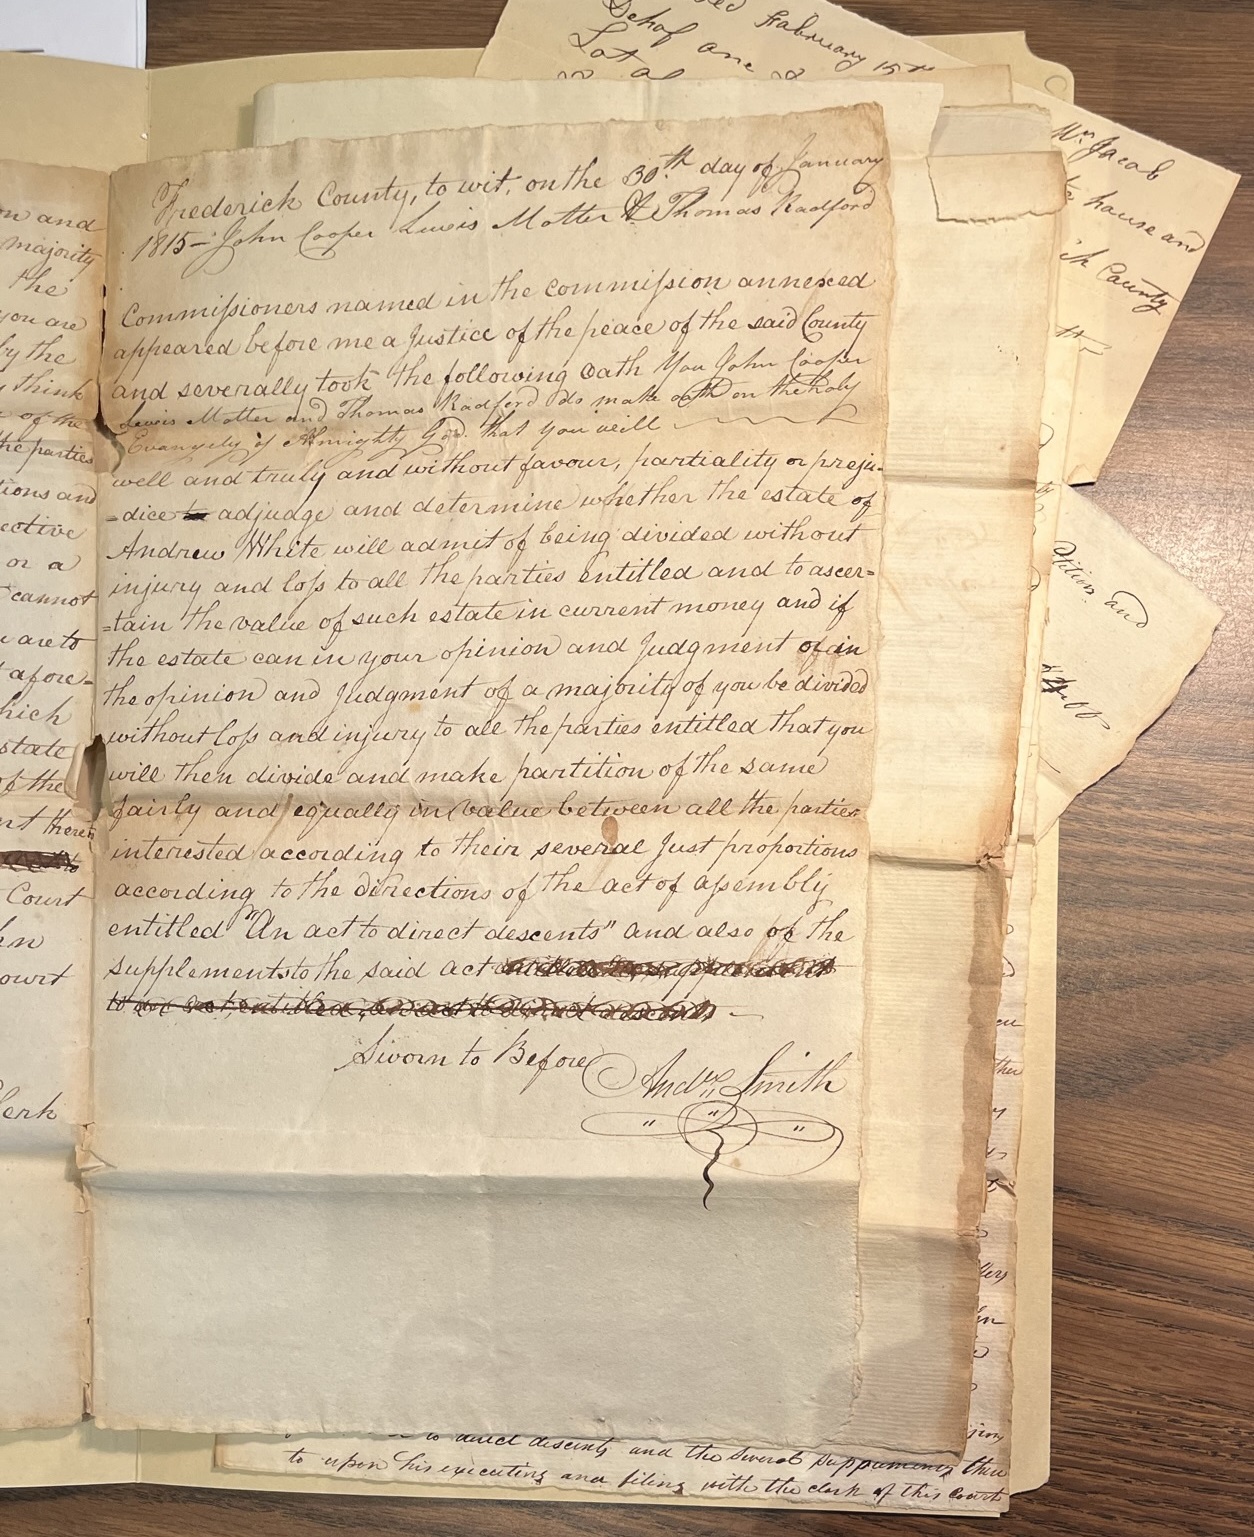 Frederick County, to wit, on the 30th day of January
1815 – John Cooper Lewis Motter & Thomas Radford
Commissioners named in the commission annexed
appeared before me a Justice of the peace of the said County
and severally took the following oath You John Cooper
Lewis Motter and Thomas Radford do make oath on the holy
Evangely of Almighty God that you will
well and truly and without favour, partiality or preju-
=dice adjudge and determine whether the estate of
Andrew White will admit of being divided without
injury and loss to all the parties entitled and to ascer=
=tain the value of such estate in current money and if
the estate can in your opinion and Judgment or in
the opinion and Judgment of a majority of you be divided
without loss and injury to all the parties entitled that you
will then divide and make partition of the same
fairly and equally in value between all the parties
interested according to their several Just proportions
according to the directions of the act of assembly
entitled "An act to direct descents" and also of the
supplements to the said act entitled
to an act, entitled, an act to direct descents
Sworn to Before
Andw Smith
n and
majority
the
you are
by the
think
of the
the parties
tions and
ective
or a
cannot
are to
afore=
hich
state
of the
Court
ourt
lerk
February 15th
Behalf
Lot
Wm Jacob
house and
County
and
to direct descents and the several supplements
to upon his executing and filing with the clerk of this Court